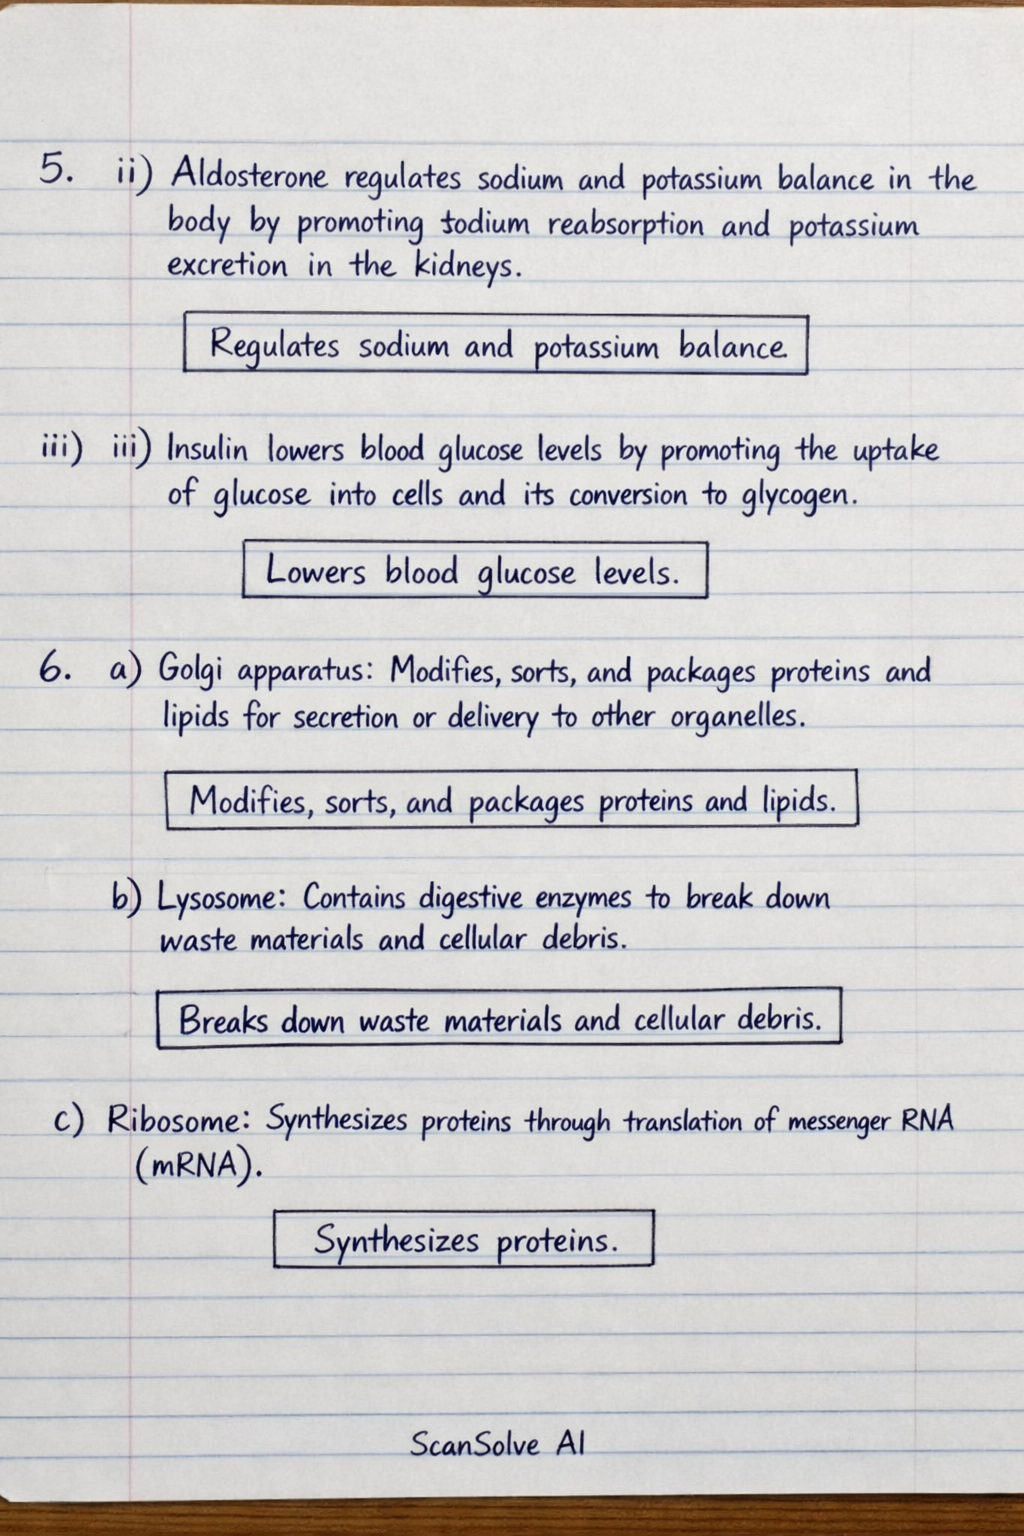 5. ii) Aldosterone regulates sodium and potassium balance in the
body by promoting sodium reabsorption and potassium
excretion in the kidneys.
Regulates sodium and potassium balance.
iii) iii) Insulin lowers blood glucose levels by promoting the uptake
of glucose into cells and its conversion to glycogen.
Lowers blood glucose levels.
6. a) Golgi apparatus: Modifies, sorts, and packages proteins and
lipids for secretion or delivery to other organelles.
Modifies, sorts, and packages proteins and lipids.
b) Lysosome: Contains digestive enzymes to break down
waste materials and cellular debris.
Breaks down waste materials and cellular debris.
c) Ribosome: Synthesizes proteins through translation of messenger RNA
(mRNA).
Synthesizes proteins.
ScanSolve AI